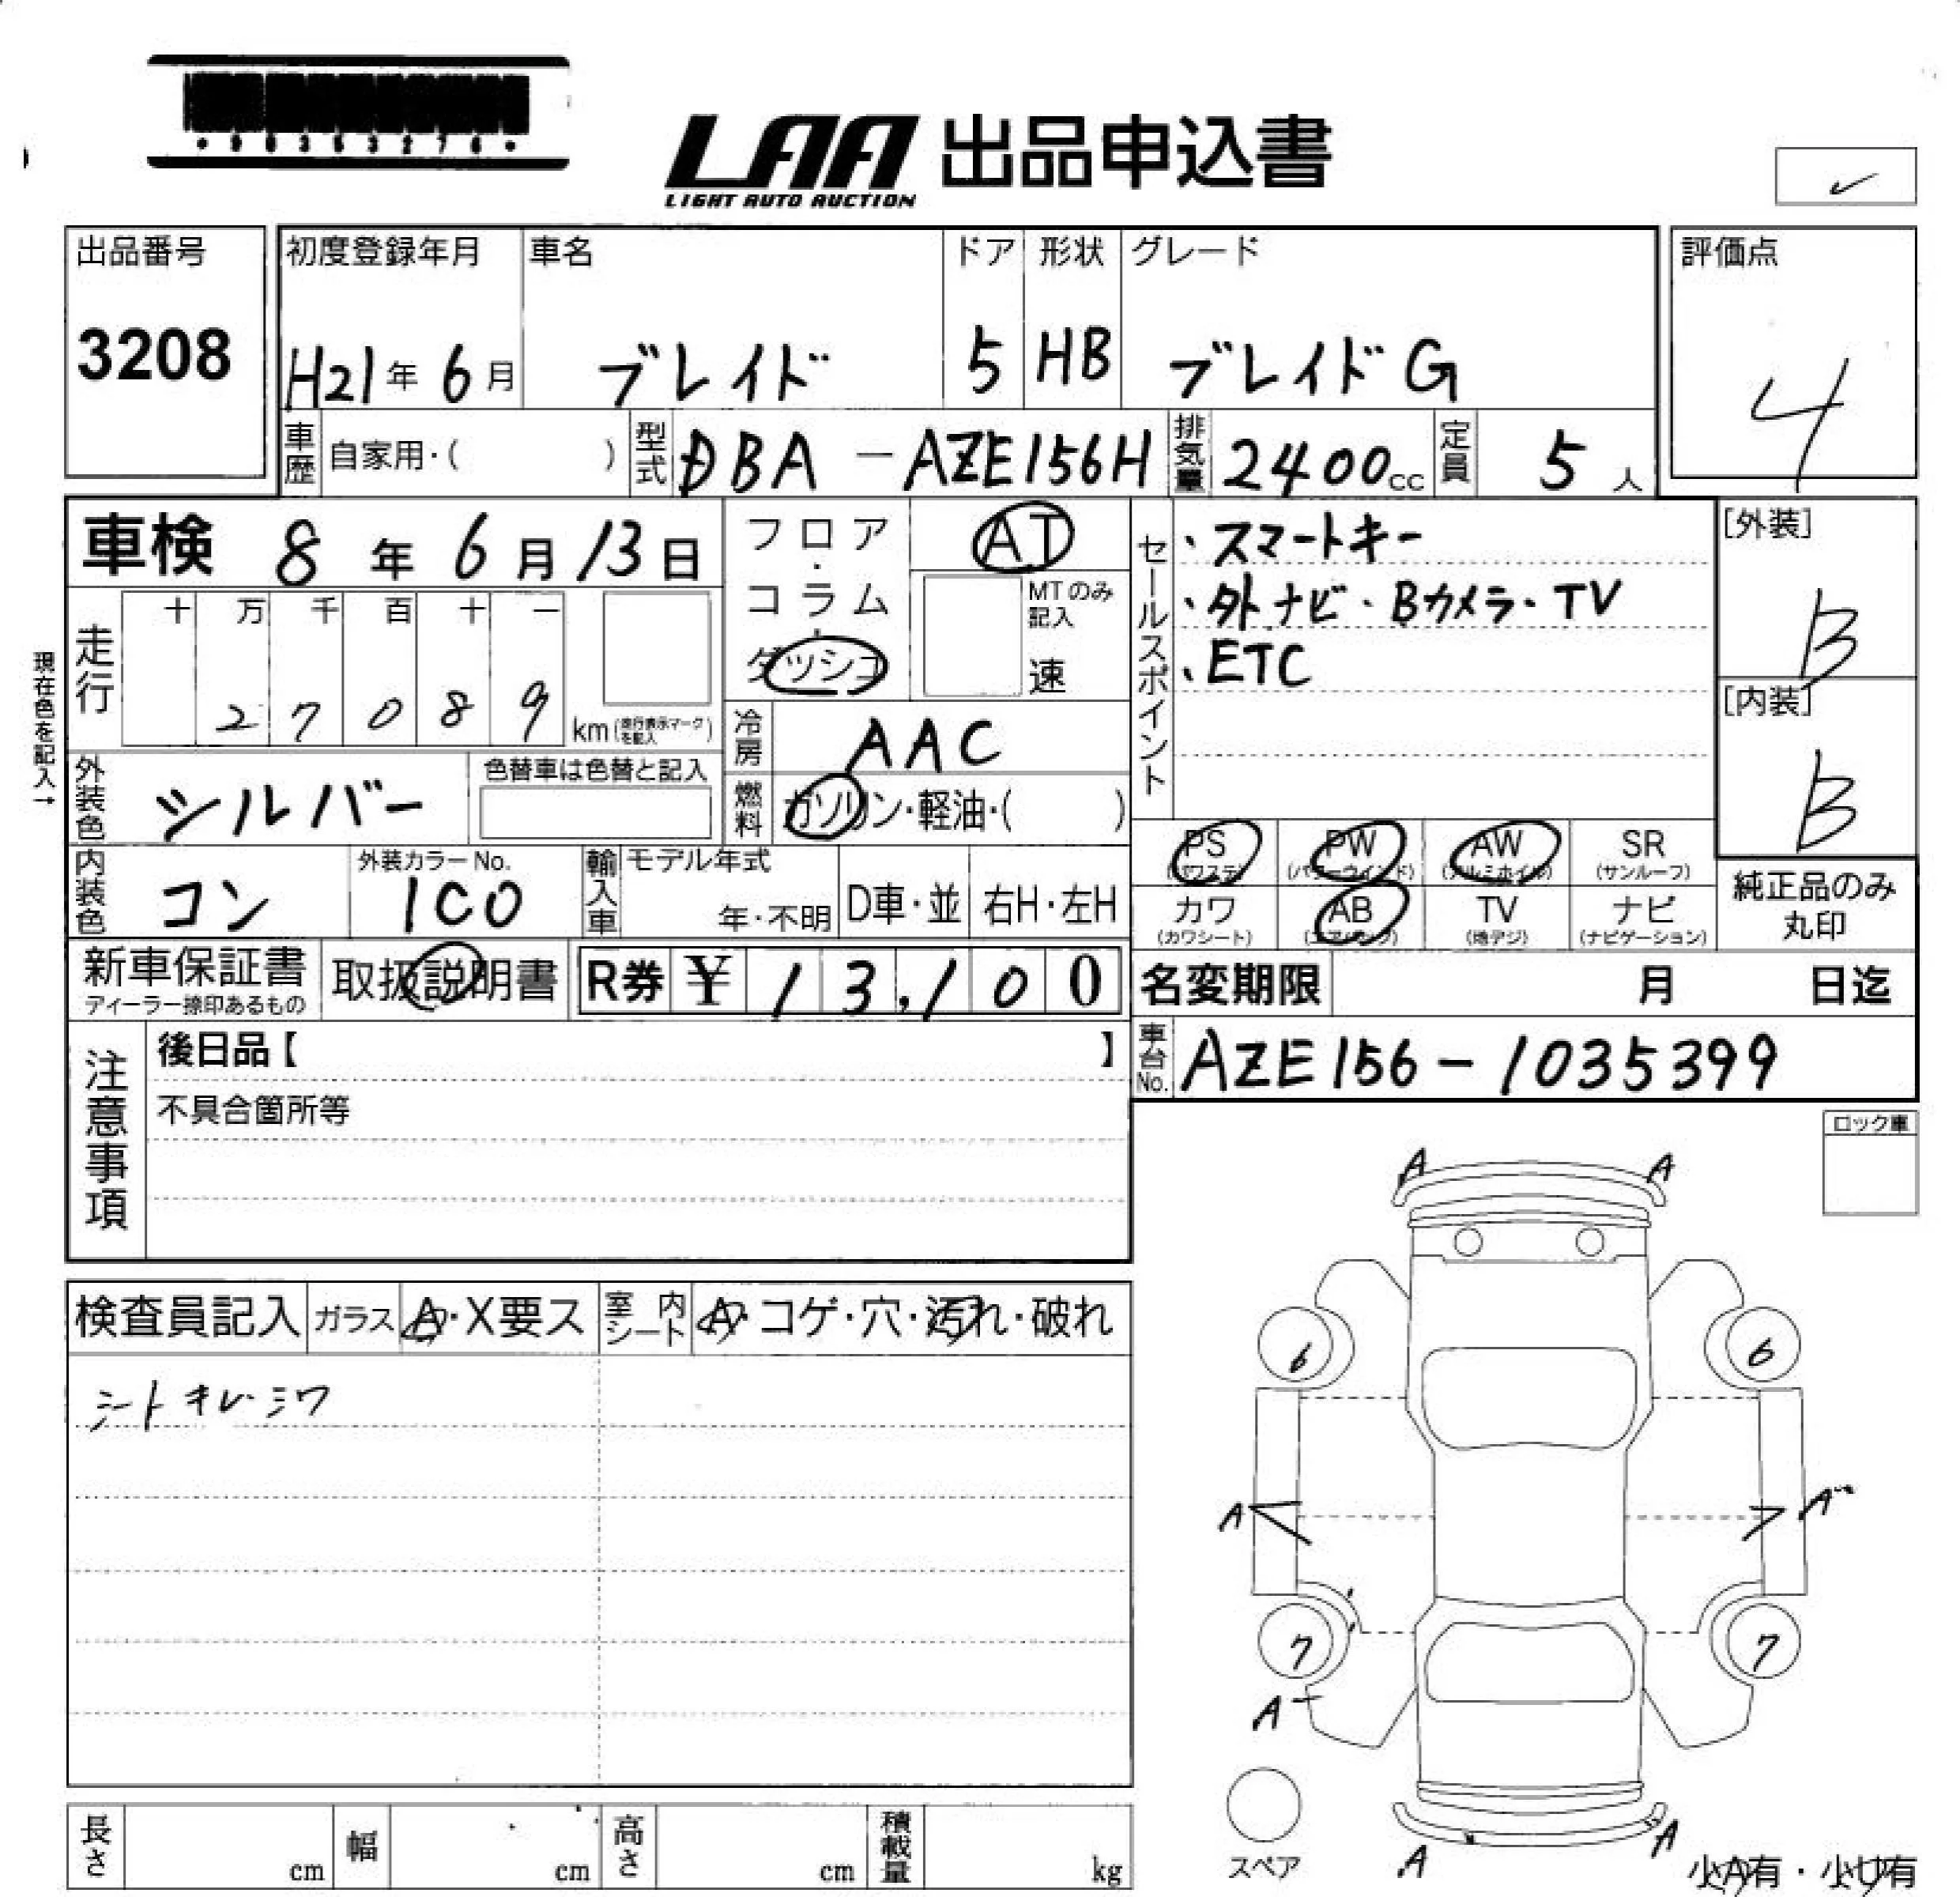 LAA 出品申込書
LIGHT AUTO AUCTION
出品番号 初度登録年月 車名 ドア 形状 グレード 評価点
3208 H21年 6月 ブレイド 5 HB ブレイド G 4
車歴 自家用・( ) 型式 DBA-AZE156H 排気量 2400cc 定員 5人
車検 8年 6月 13日
フロア・コラム・ダッシュ
AT
MTのみ記入
速
セールスポイント
・スマートキー
・外ナビ・Bカメラ・TV
・ETC
[外装]
B
[内装]
B
現在色を記入→
走行 十 万 千 百 十 一
2 7 0 8 9 km(走行表示マークを記入)
冷房 AAC
燃料 ガソリン・軽油・( )
外装色 シルバー 色替車は色替と記入
PS PW AW SR
(パワステ) (パワーウインド) (アルミホイル) (サンルーフ)
カワ AB TV ナビ
(カワシート) (エアバック) (地デジ) (ナビゲーション)
純正品のみ
丸印
内装色 コン 外装カラーNo. 1C0 輸入車 モデル年式 年・不明 D車・並 右H・左H
新車保証書 取扱説明書 R券 ¥ 13,100
ディーラー捺印あるもの
名変期限 月 日迄
車台No. AZE156-1035399
注意事項
後日品【 】
不具合箇所等
ロック車
A A
検査員記入 ガラス A・X要ス 室内シート A・コゲ・穴・汚れ・破れ
シートキレ・シワ
6 6
A A
7 7
A
スペア
A A
小A有・小U有
長さ cm 幅 cm 高さ cm 積載量 kg